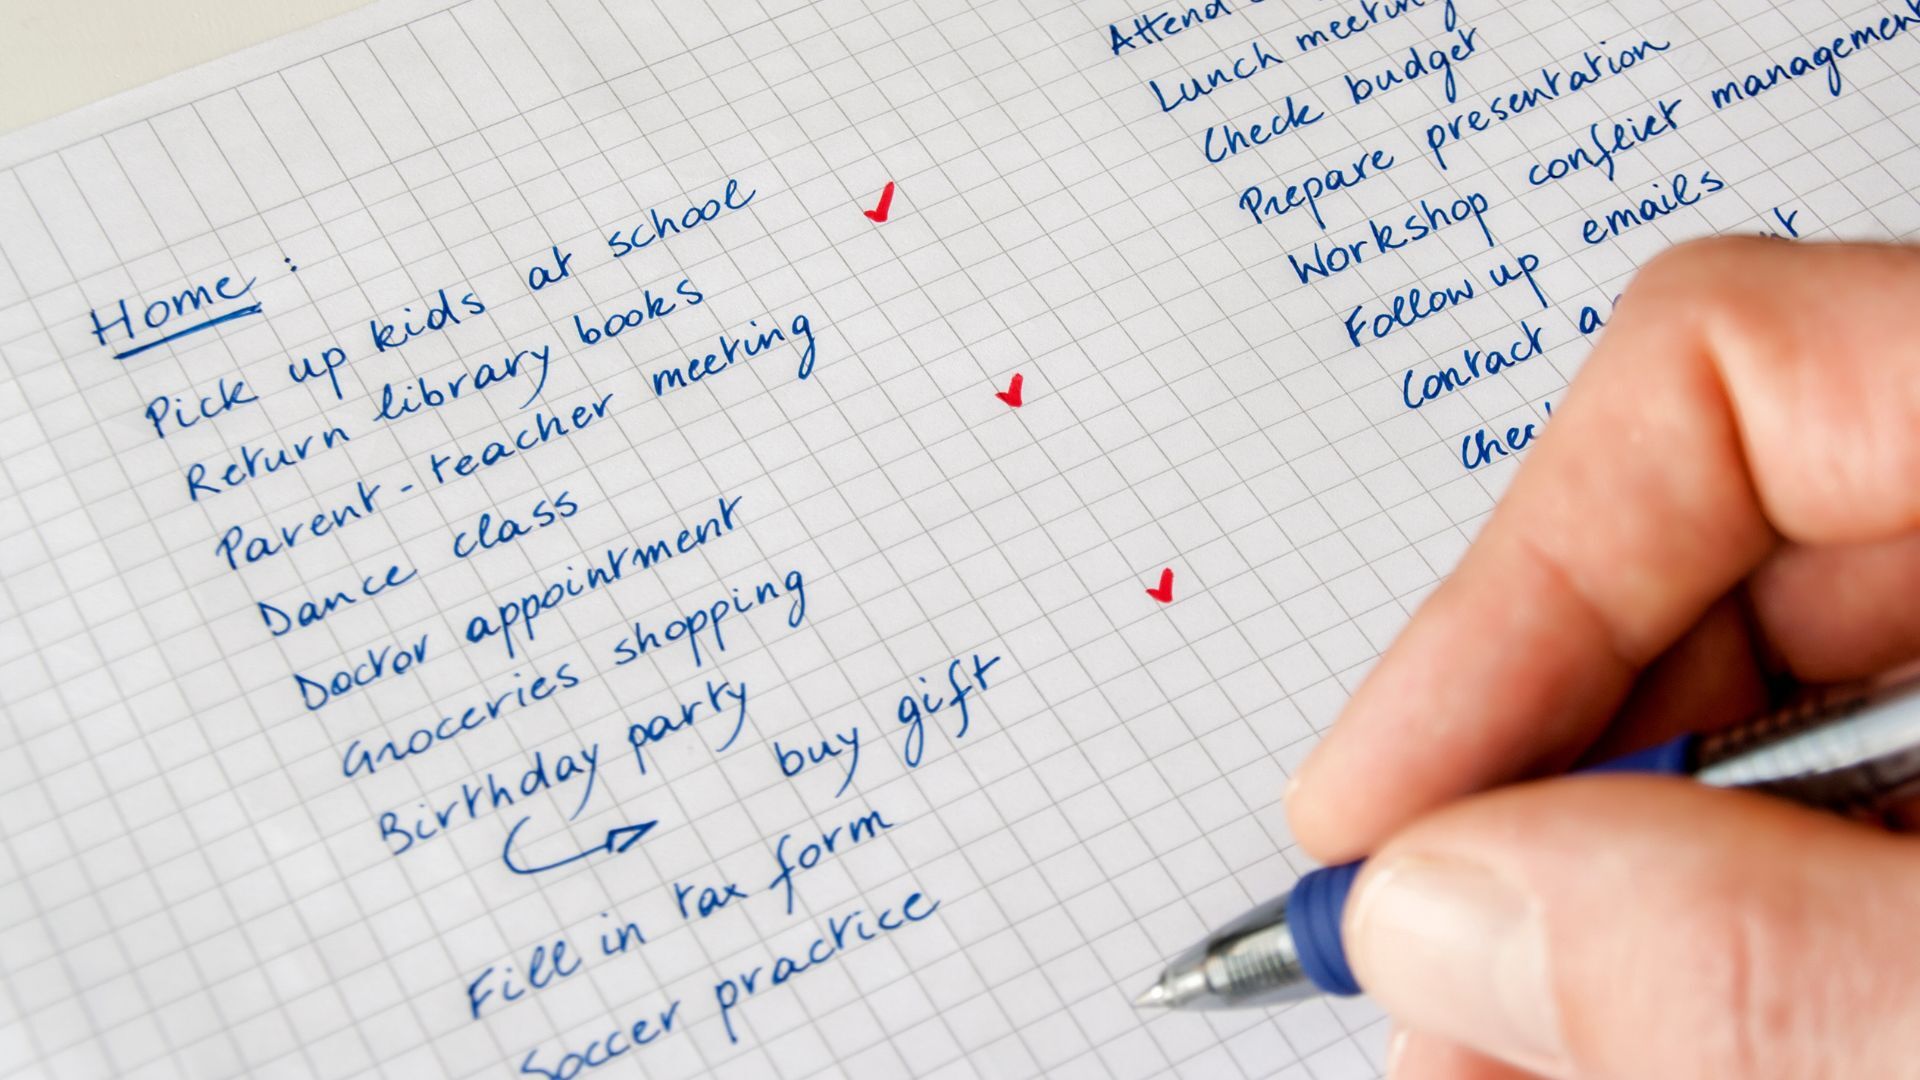 Home :
Pick up kids at school
Return library books
Parent-teacher meeting
Dance class
Doctor appointment
Groceries shopping
Birthday party
buy gift
Fill in tax form
Soccer practice
Attend
Lunch meeting
Check budget
Prepare presentation
Workshop conflict management
Follow up emails
Contact